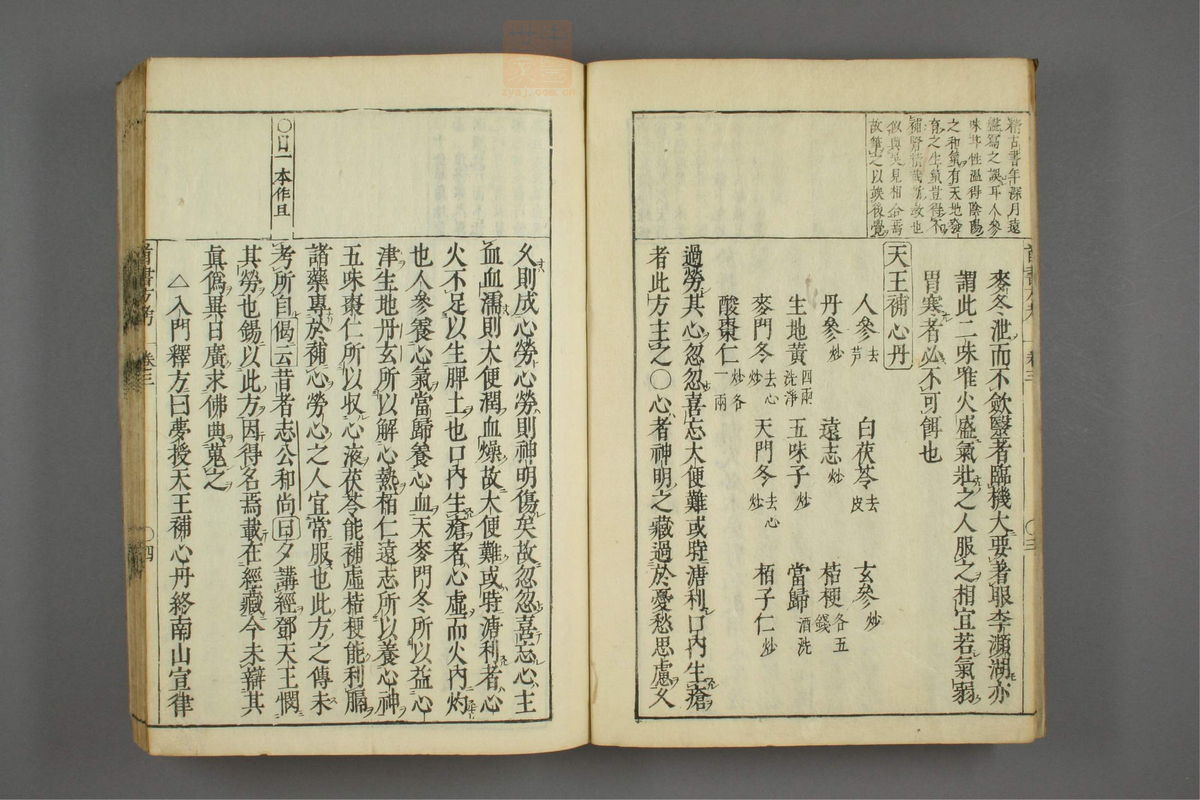 精古書年深月遠
謄寫之誤耳人參
味甘性溫得陰陽
之和氣有天地發
育之生氣豈得不
補腎精哉
似與吳見相合焉
故筆之以俟後覺
麥冬泄而不斂醫者臨機大要著眼李瀕湖亦
謂此二味唯火盛氣壯之人服之相宜若氣弱
胃寒者必不可餌也
天王補心丹
人參去芦 白茯苓去皮 玄參炒
丹參炒 遠志炒 桔梗各五錢
生地黃四兩洗淨 五味子炒 當歸酒洗
麥門冬去心炒 天門冬去心炒 栢子仁炒
酸棗仁炒各一兩
過勞其心忽忽喜忘大便難或時溏利口內生瘡
者此方主之〇心者神明之藏過於憂愁思慮久
久則成心勞心勞則神明傷矣故忽忽喜忘心主
血血濡則大便潤血燥故大便難或時溏利者心
火不足以生脾土也口內生瘡者心虛而火內灼
也人參養心氣當歸養心血天麥門冬所以益心
津生地丹玄所以解心熱栢仁遠志所以養心神
五味棗仁所以收心液茯苓能補虛桔梗能利膈
諸藥專於補心勞心之人宜常服也此方之傳未
〇曰一本作且
考所自偈云昔者志公和尚曰夕講經鄧天王憫
其勞也錫以此方因得名焉載在經藏今未辯其
真僞異日廣求佛典蒐之
△入門釋方曰夢授天王補心丹終南山宣律
卷三
〇三
卷三
〇四